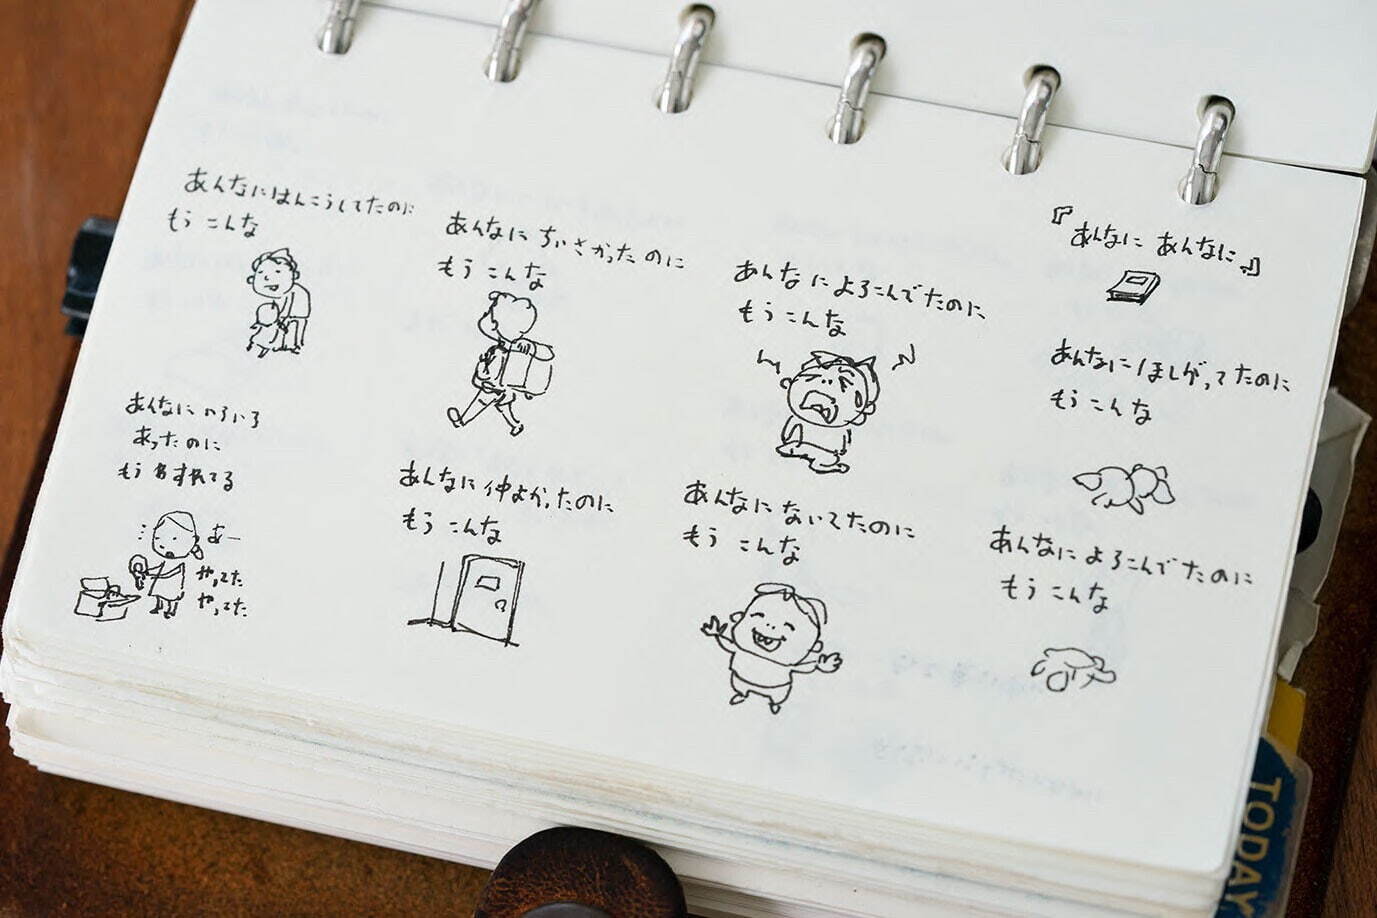 『あんなに あんなに』
あんなにほしがってたのに
もう こんな
あんなに よろこんでたのに
もう こんな
あんなによろこんでたのに
もう こんな
あんなに ないてたのに
もう こんな
あんなに ちいさかったのに
もう こんな
あんなに 仲よかったのに
もう こんな
あんなにはんこうしてたのに
もう こんな
あんなに いろいろ
あったのに
もう わすれてる
あー
やってた
やってた
TODAY